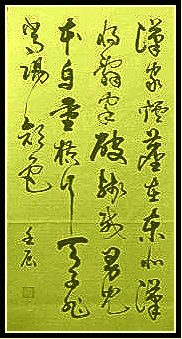 漢家煙塵在東北漢
將辭家破殘賊男兒
本自重橫行天子非
常賜顏色
壬辰